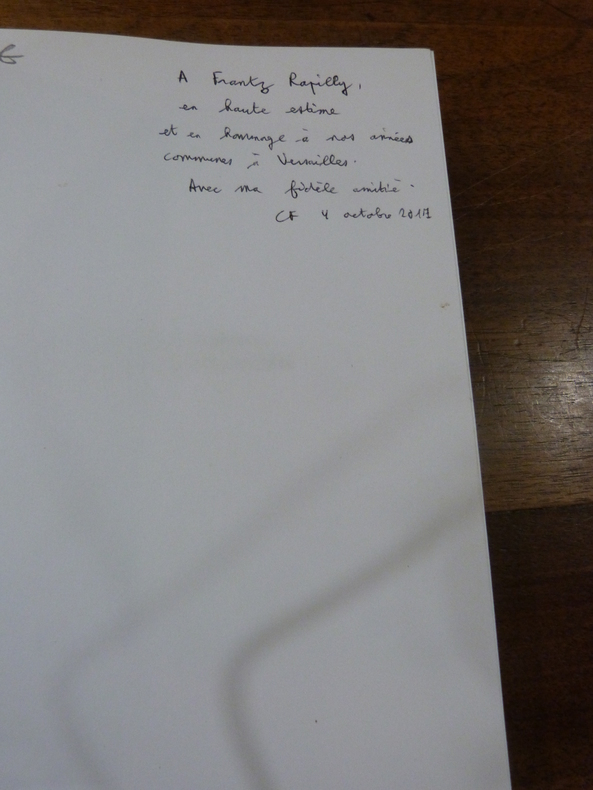 A Frantz Rapilly,
en haute estime
et en hommage à nos années
communes à Versailles.
Avec ma fidèle amitié.
CF 4 octobre 2017